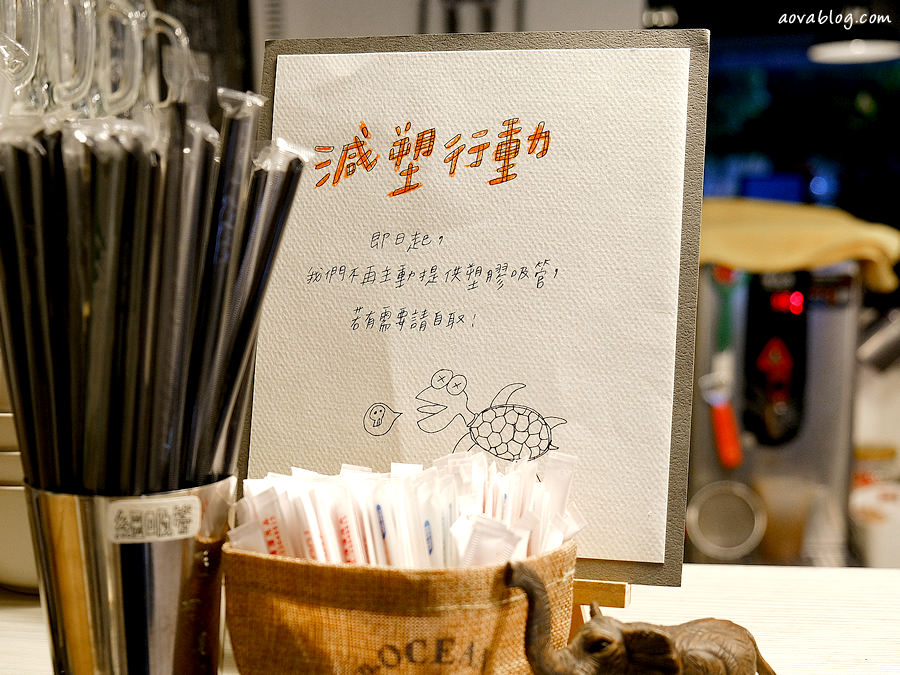 aovablog.com
減塑行動
即日起,
我們不再主動提供塑膠吸管,
若有需要請自取!
細吸管
ROCEA